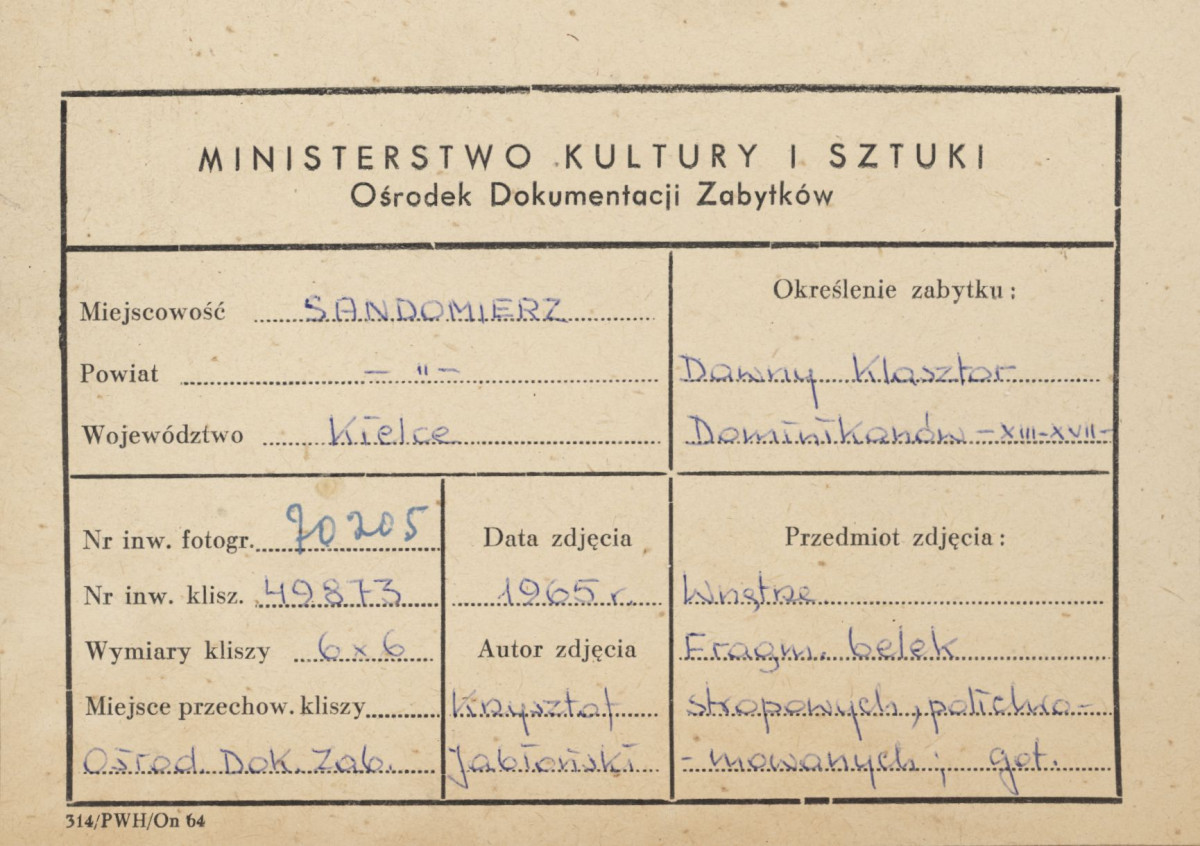 MINISTERSTWO KULTURY I SZTUKI
Ośrodek Dokumentacji Zabytków
Miejscowość SANDOMIERZ
Powiat — " —
Województwo Kielce
Określenie zabytku:
Dawny Klasztor
Dominikanów — XIII-XVII-
Nr inw. fotogr. 70205
Nr inw. klisz. 49873
Wymiary kliszy 6 x 6
Miejsce przechow. kliszy
Ośrod. Dok. Zab.
Data zdjęcia
1965 r.
Autor zdjęcia
Krzysztof
Jabłoński
Przedmiot zdjęcia:
Wnętrze
Fragm. belek
stropowych, polichro-
-mowanych; got.
314/PWH/On 64